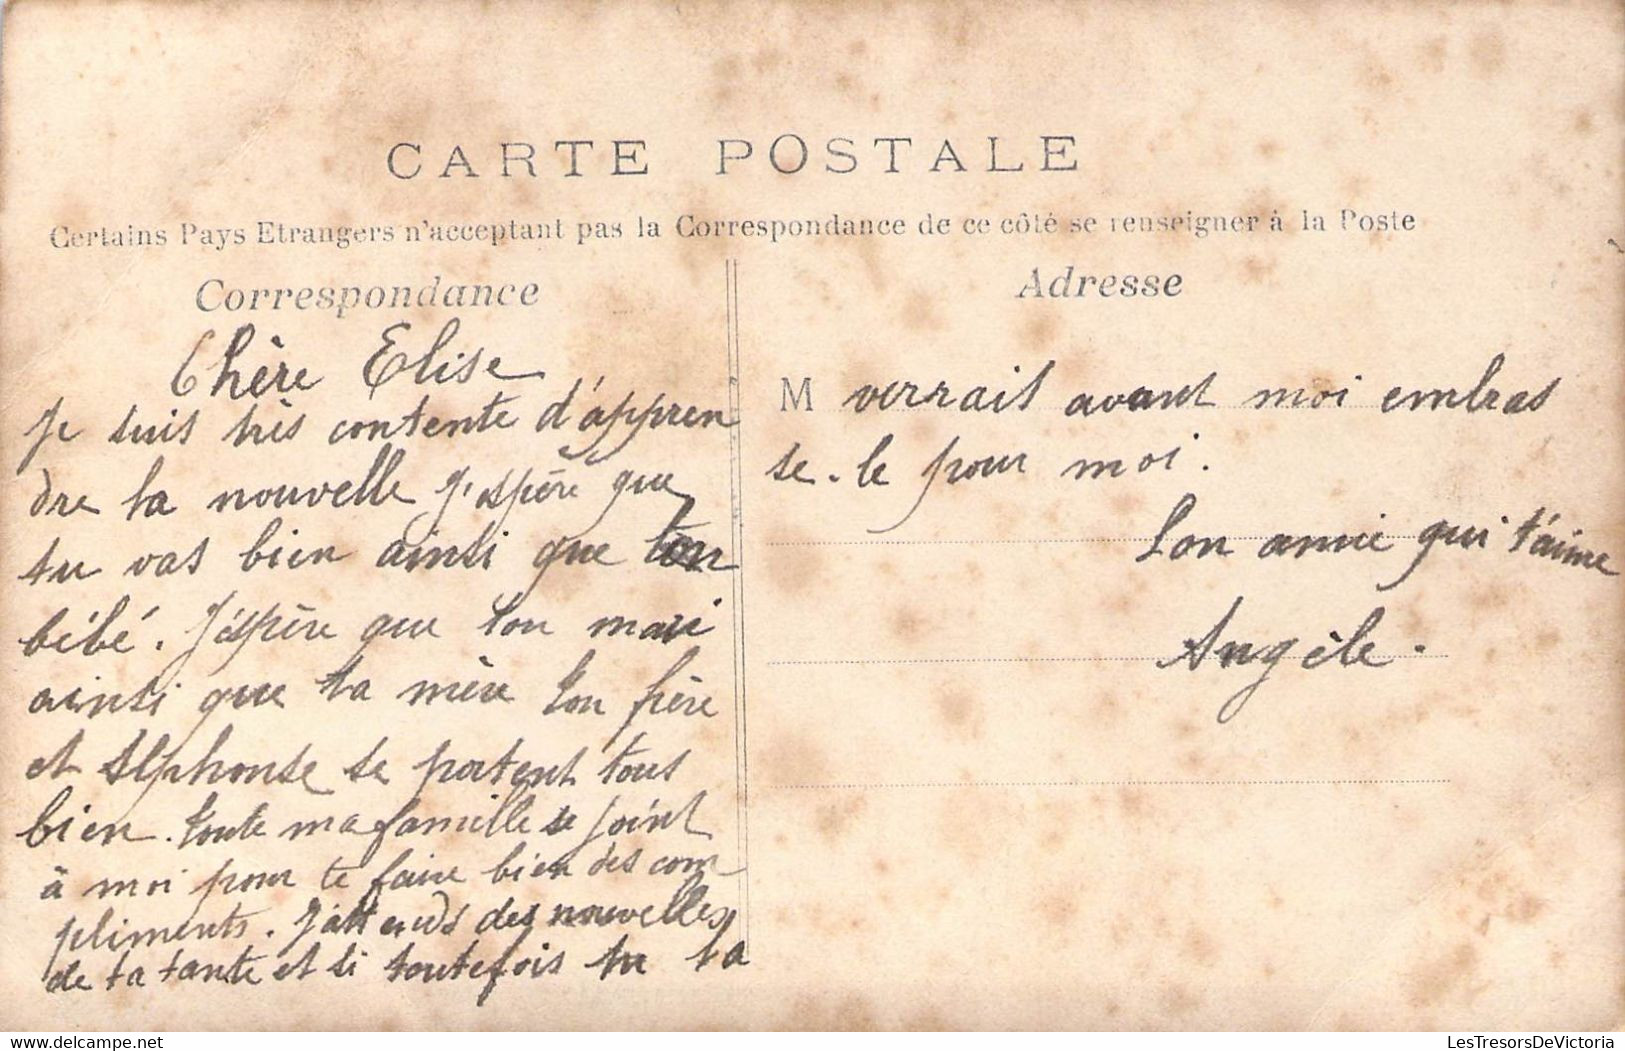 CARTE POSTALE
Certains Pays Etrangers n'acceptant pas la Correspondance de ce côté se renseigner à la Poste
Correspondance
Chère Elise
Je suis très contente d'appren
dre ta nouvelle J'espère que
tu vas bien ainsi que ton
bébé. J'éspère que ton mari
ainsi que ta mère ton frère
et Alphonse se portent tous
bien. toute ma famille se joint
à moi pour te faire bien des com
pliments. J'attends des nouvelles
de ta tante et si toutefois tu la
Adresse
M verrais avant moi embras
se-le pour moi.
Ton amie qui t'aime
Angèle.
LesTresorsDeVictoria